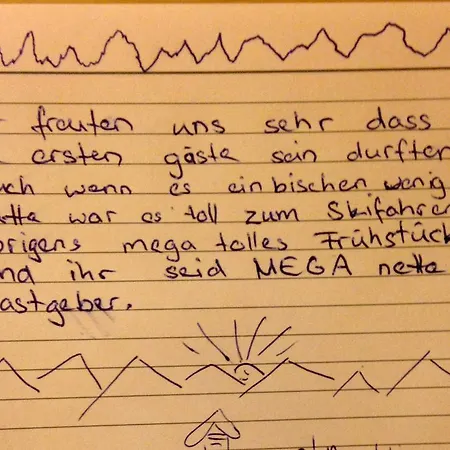 frauten uns sehr dass
ersten gäste sein durften
wenn es ein bischen wenig
hatte war es toll zum Skifahren
mega tolles Frühstück
ihr seid MEGA nette
astgeber.